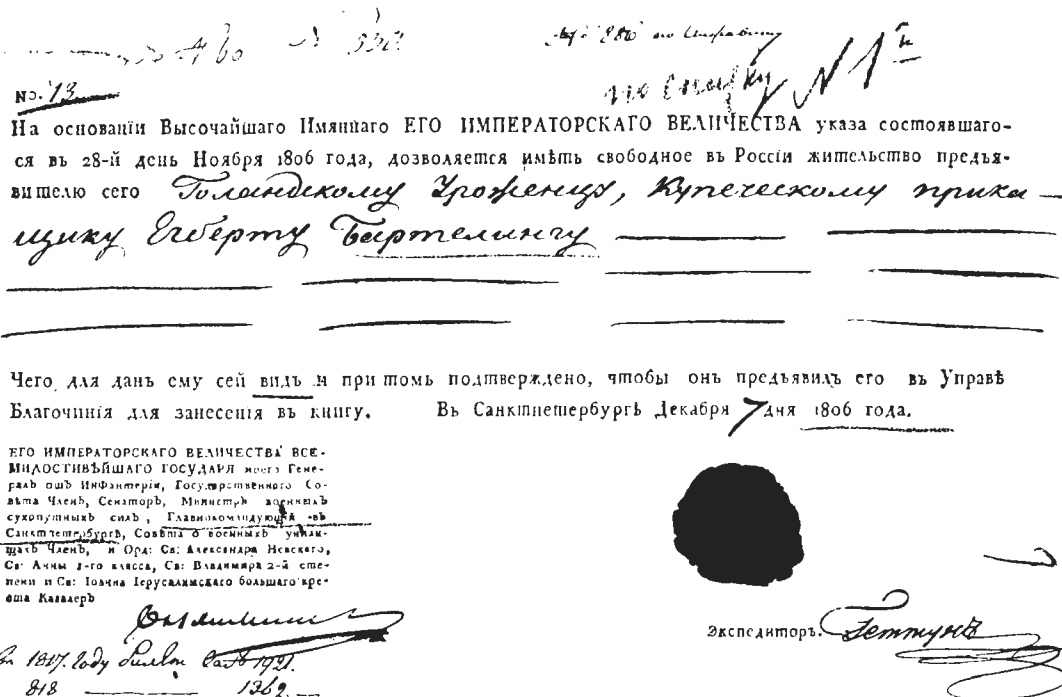 по списку N 1й
No. 13
На основанїи Высочайшаго Имяннаго ЕГО ИМПЕРАТОРСКАГО ВЕЛИЧЕСТВА указа состоявшаго-
ся въ 28-й день Ноября 1806 года, дозволяется имѣть свободное въ Россїи жительство предъя-
вителю сего Голандскому Уроженцу, Купеческому прика-
щику Егберту Бартелингу
Чего для данъ ему сей видъ и при томъ подтверждено, чтобы онъ предъявилъ его въ Управѣ
Благочинїя для занесенїя въ книгу. Въ Санктпетербургѣ Декабря 7 дня 1806 года.
ЕГО ИМПЕРАТОРСКАГО ВЕЛИЧЕСТВА ВСЕ-
МИЛОСТИВѢЙШАГО ГОСУДАРЯ моего Гене-
ралъ отъ Инфантерїи, Государственного Со-
вѣта Членъ, Сенаторъ, Министръ военныхъ
сухопутныхъ силъ, Главнокомандующїй въ
Санктпетербургѣ, Совѣта о военныхъ учили-
щахъ Членъ, и Орд: Св: Александра Невскаго,
Св: Анны 1-го класса, Св: Владимира 2-й сте-
пени и Св: Іоанна Іерусалимскаго большаго кре-
ста Кавалеръ
Экспедиторъ. Геттунъ
1817. году билетъ 1921.
818 1362.